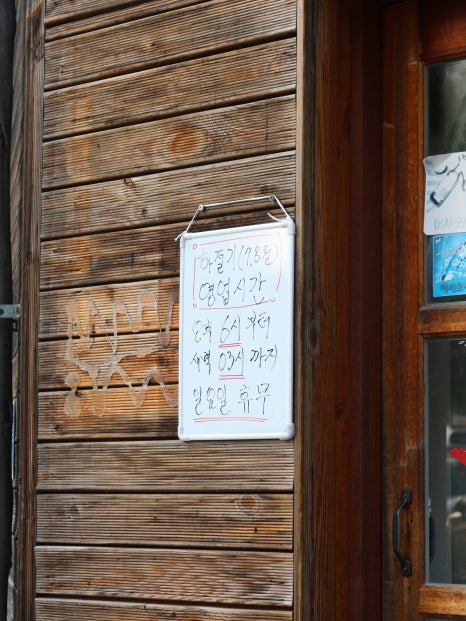 하절기(7,8월)
영업시간
오후 6시 부터
새벽 03시 까지
일요일 휴무